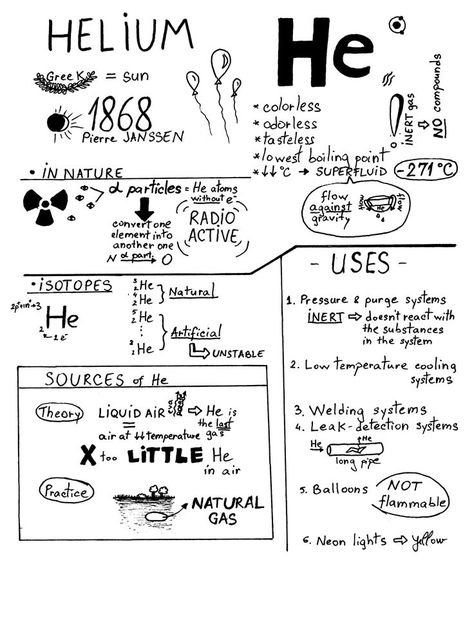 HELIUM
GreeK = sun
1868
Pierre JANSSEN
He
* colorless
* odorless
* tasteless
* lowest boiling point
* ↓↓°C → SUPERFLUID
-271°C
flow
against
gravity
He
! INERT gas ⇨ NO compounds
• IN NATURE
α particles = He atoms
without e⁻
RADIO
ACTIVE
convert one
element into
another one
N α part. O
• ISOTOPES
He
2
3 2 He
4 2 He
Natural
5 2 He
⋮
2 He
Artificial
↳ UNSTABLE
SOURCES of He
Theory
LIQUID AIR ⇨ He is
the last
gas
=
air at ↓↓ temperature
X too LiTTLE He
in air
Practice
NATURAL
GAS
- USES -
1. Pressure & purge systems
INERT ⇨ doesn't react with
the substances
in the system
2. Low temperature cooling
systems
3. Welding systems
4. Leak-detection systems
He → ↑He
long pipe
5. Balloons
NOT
flammable
6. Neon lights ⇨ yellow